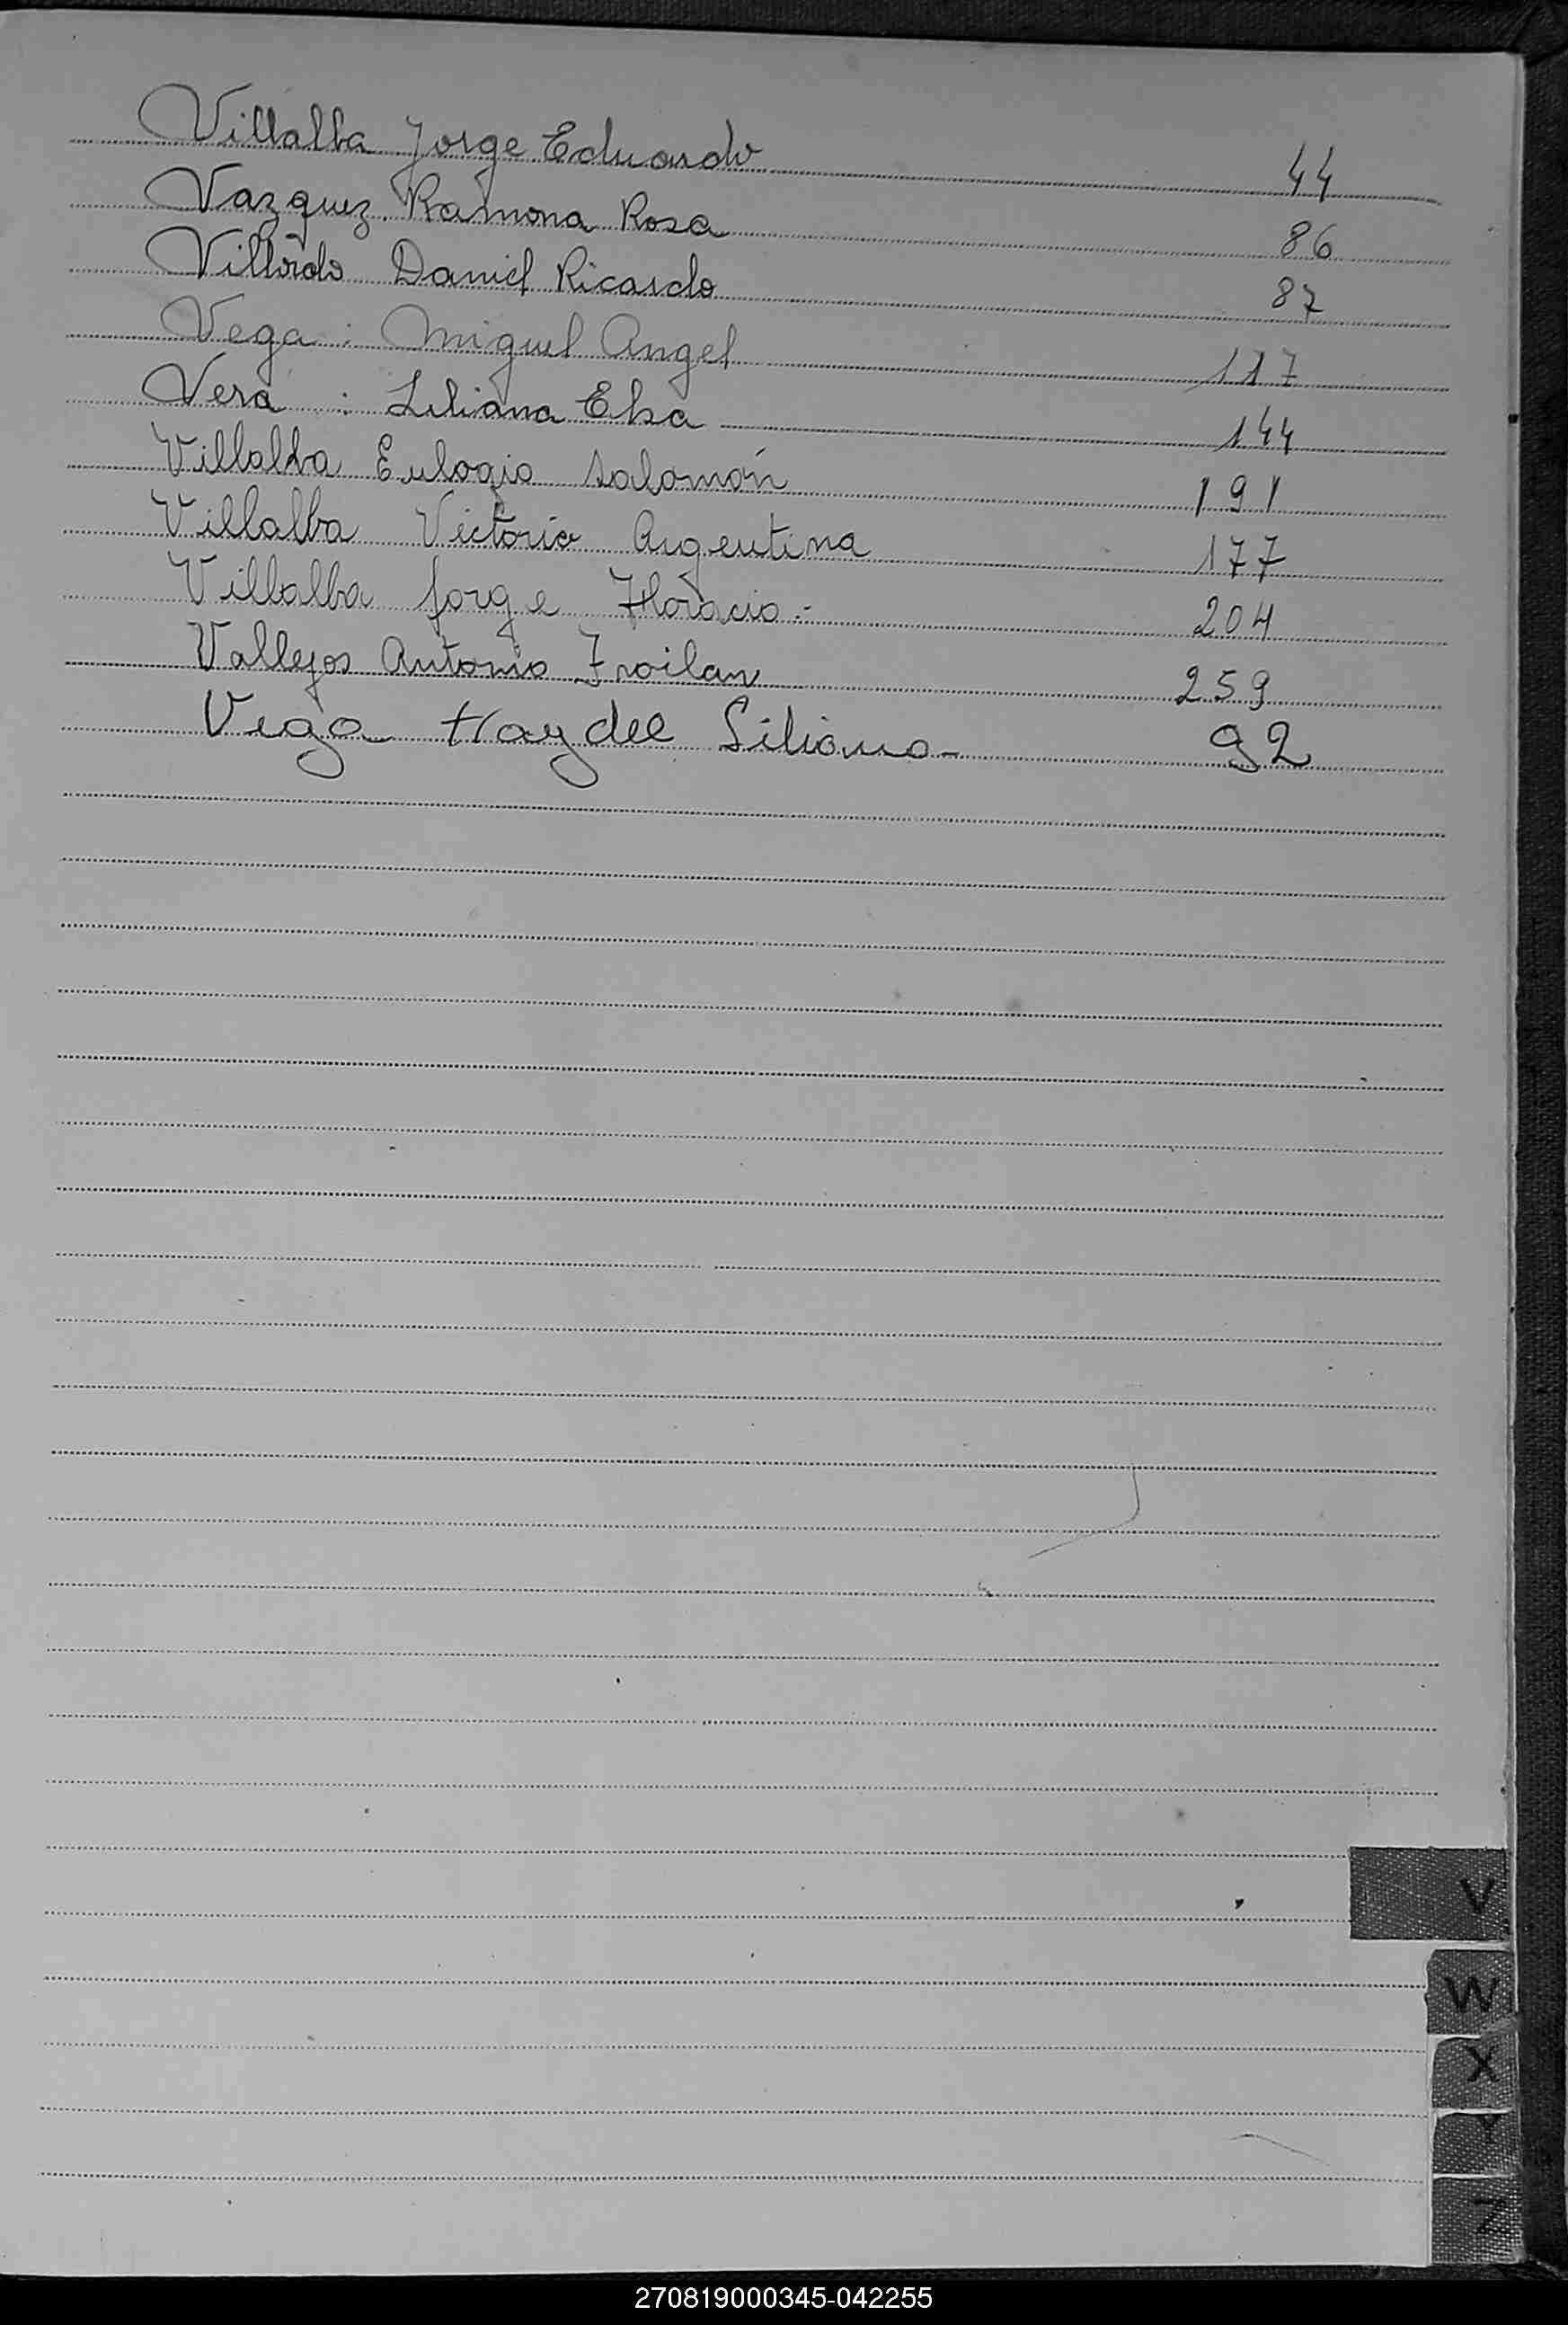 Villalba Jorge Eduardo 44
Vazquez Ramona Rosa 86
Villordo Daniel Ricardo 87
Vega : Miguel Angel 117
Vera : Liliana Elsa 144
Villalba Eulogio Salomón 191
Villalba Victoria Argentina 177
Villalba Jorge Horacio.- 204
Vallejos Antonio Froilan 259
Vega Haydee Liliana- 92
V
W
X
Y
Z
270819000345-042255